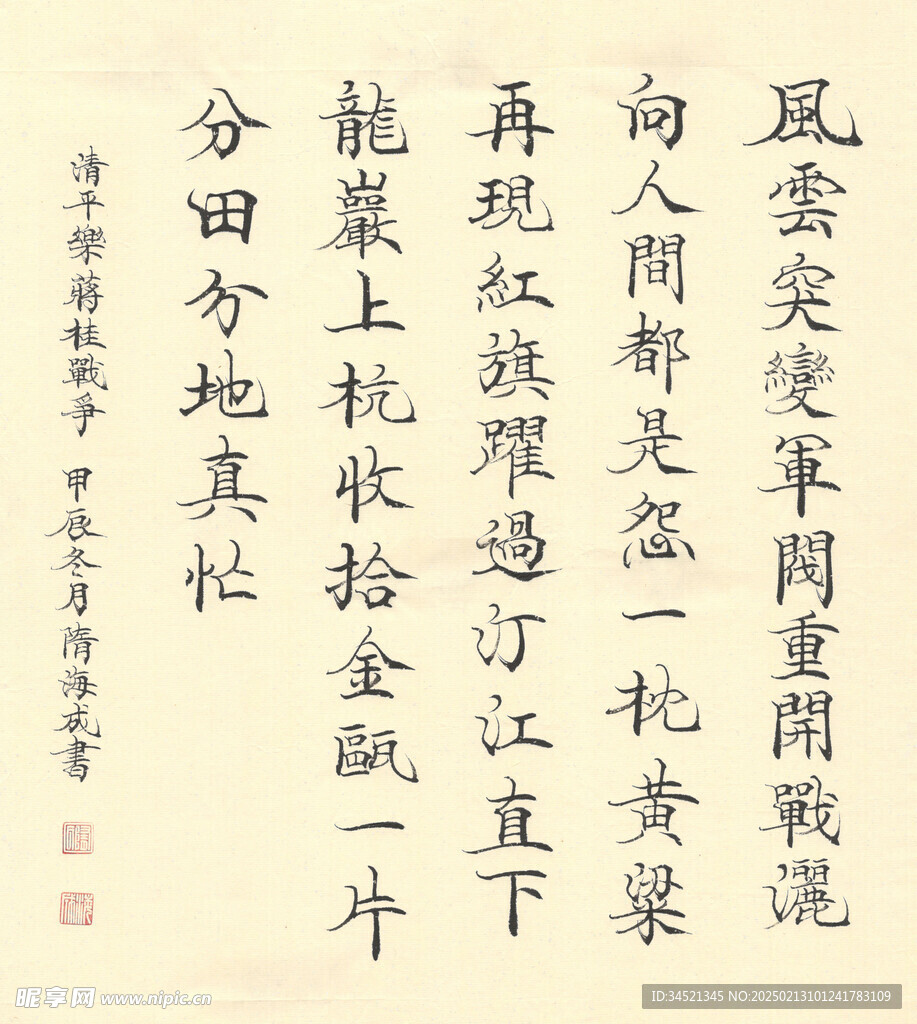 風雲突變軍閥重開戰灑
向人間都是怨一枕黃粱
再現紅旗躍過汀江直下
龍巖上杭收拾金甌一片
分田分地真忙
清平樂蔣桂戰爭 甲辰冬月隋海成書
昵享网 www.nipic.cn
ID:34521345 NO:20250213101241783109